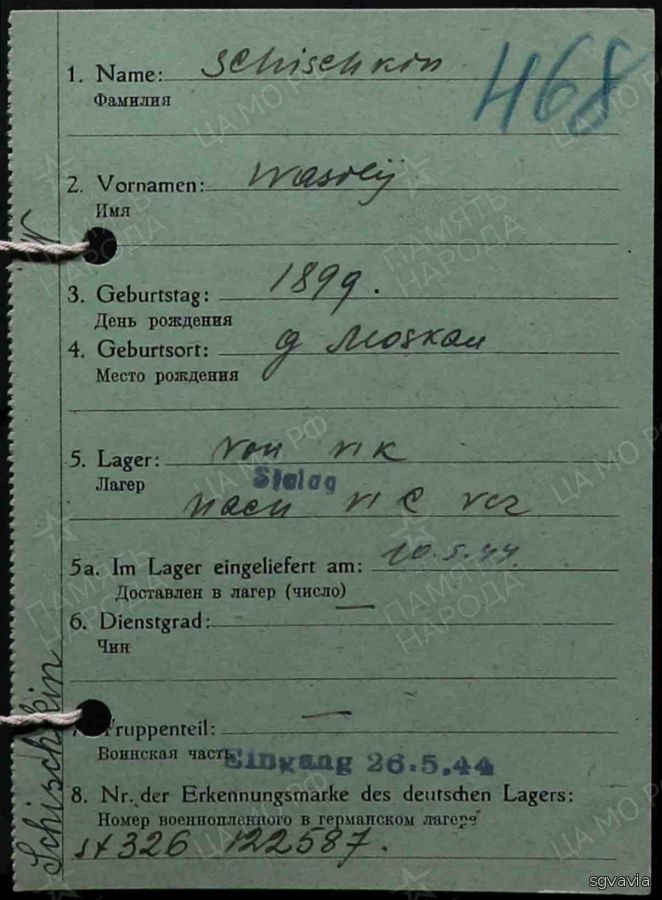 468
1. Name: Schischkin
Фамилия
2. Vornamen: Wasilij
Имя
3. Geburtstag: 1899.
День рождения
4. Geburtsort: g Moskau
Место рождения
5. Lager: von VI K
Лагер
Stalag
nach VI C
5a. Im Lager eingeliefert am: 10.5.44.
Доставлен в лагер (число)
6. Dienstgrad: —
Чин
7. Truppenteil: —
Воинская часть
Eingang 26.5.44
8. Nr. der Erkennungsmarke des deutschen Lagers:
Номер военнопленного в германском лагере
St 326 122587.
Schischkin
ПАМЯТЬ НАРОДА
ЦА МО РФ
sgvavia